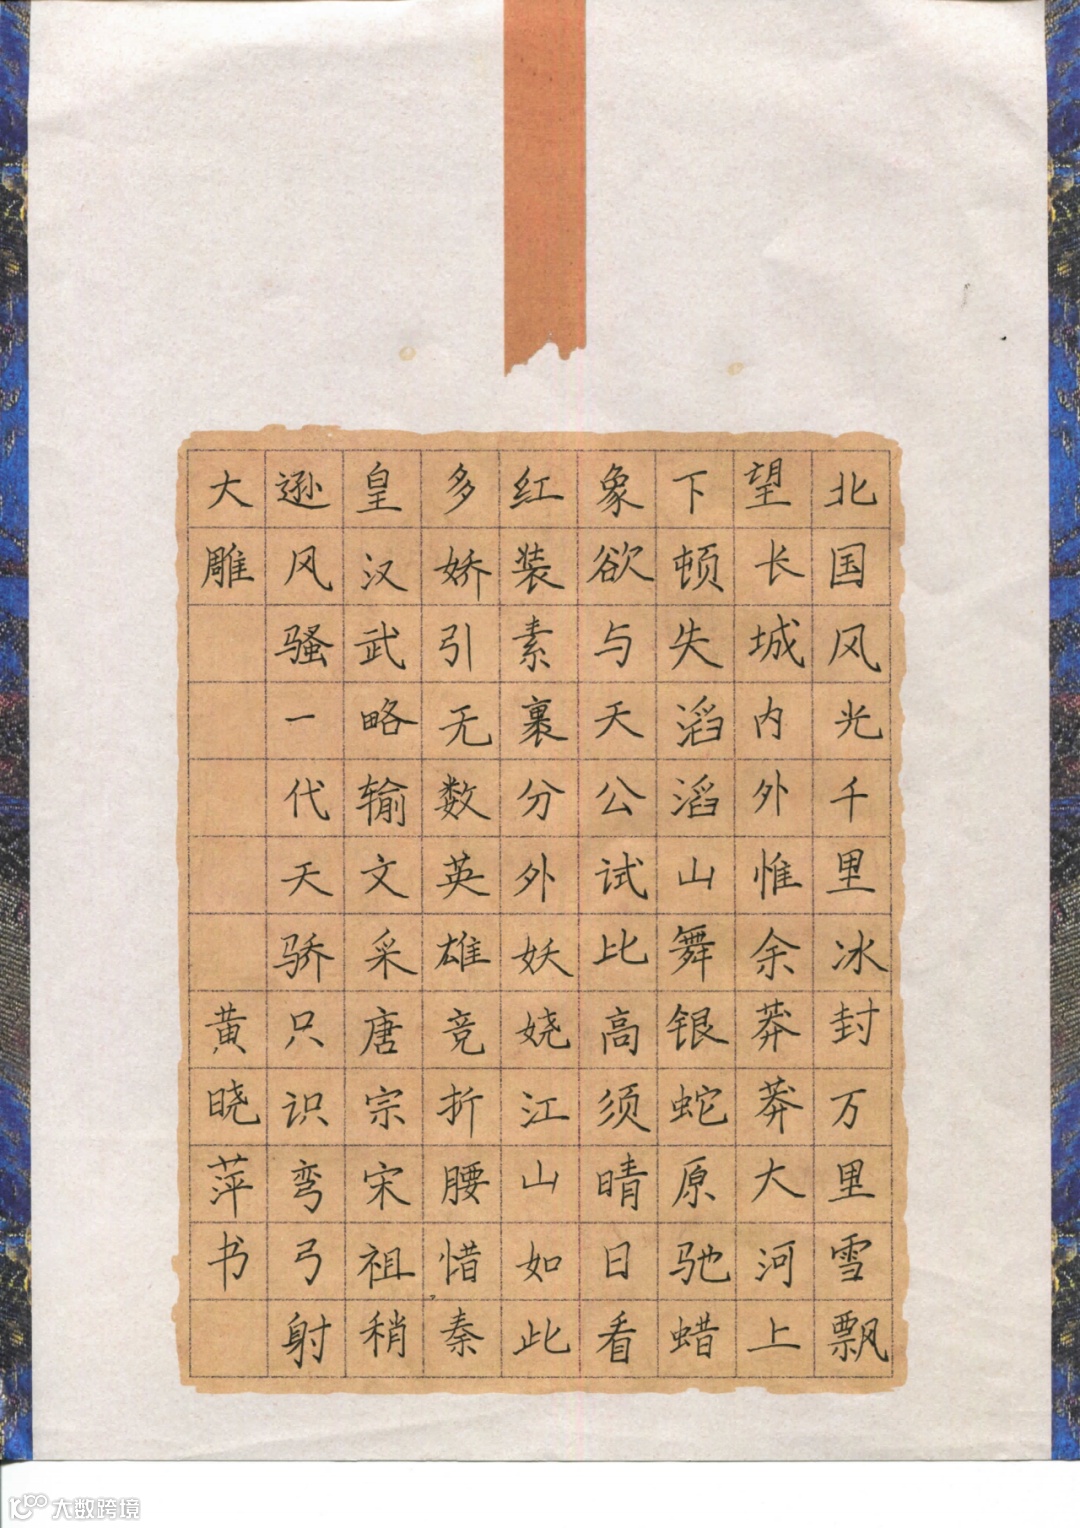 北国风光千里冰封万里雪飘
望长城内外惟余莽莽大河上
下顿失滔滔山舞银蛇原驰蜡
象欲与天公试比高须晴日看
红装素裹分外妖娆江山如此
多娇引无数英雄竞折腰惜秦
皇汉武略输文采唐宗宋祖稍
逊风骚一代天骄只识弯弓射
大雕 黄晓萍书
大数跨境